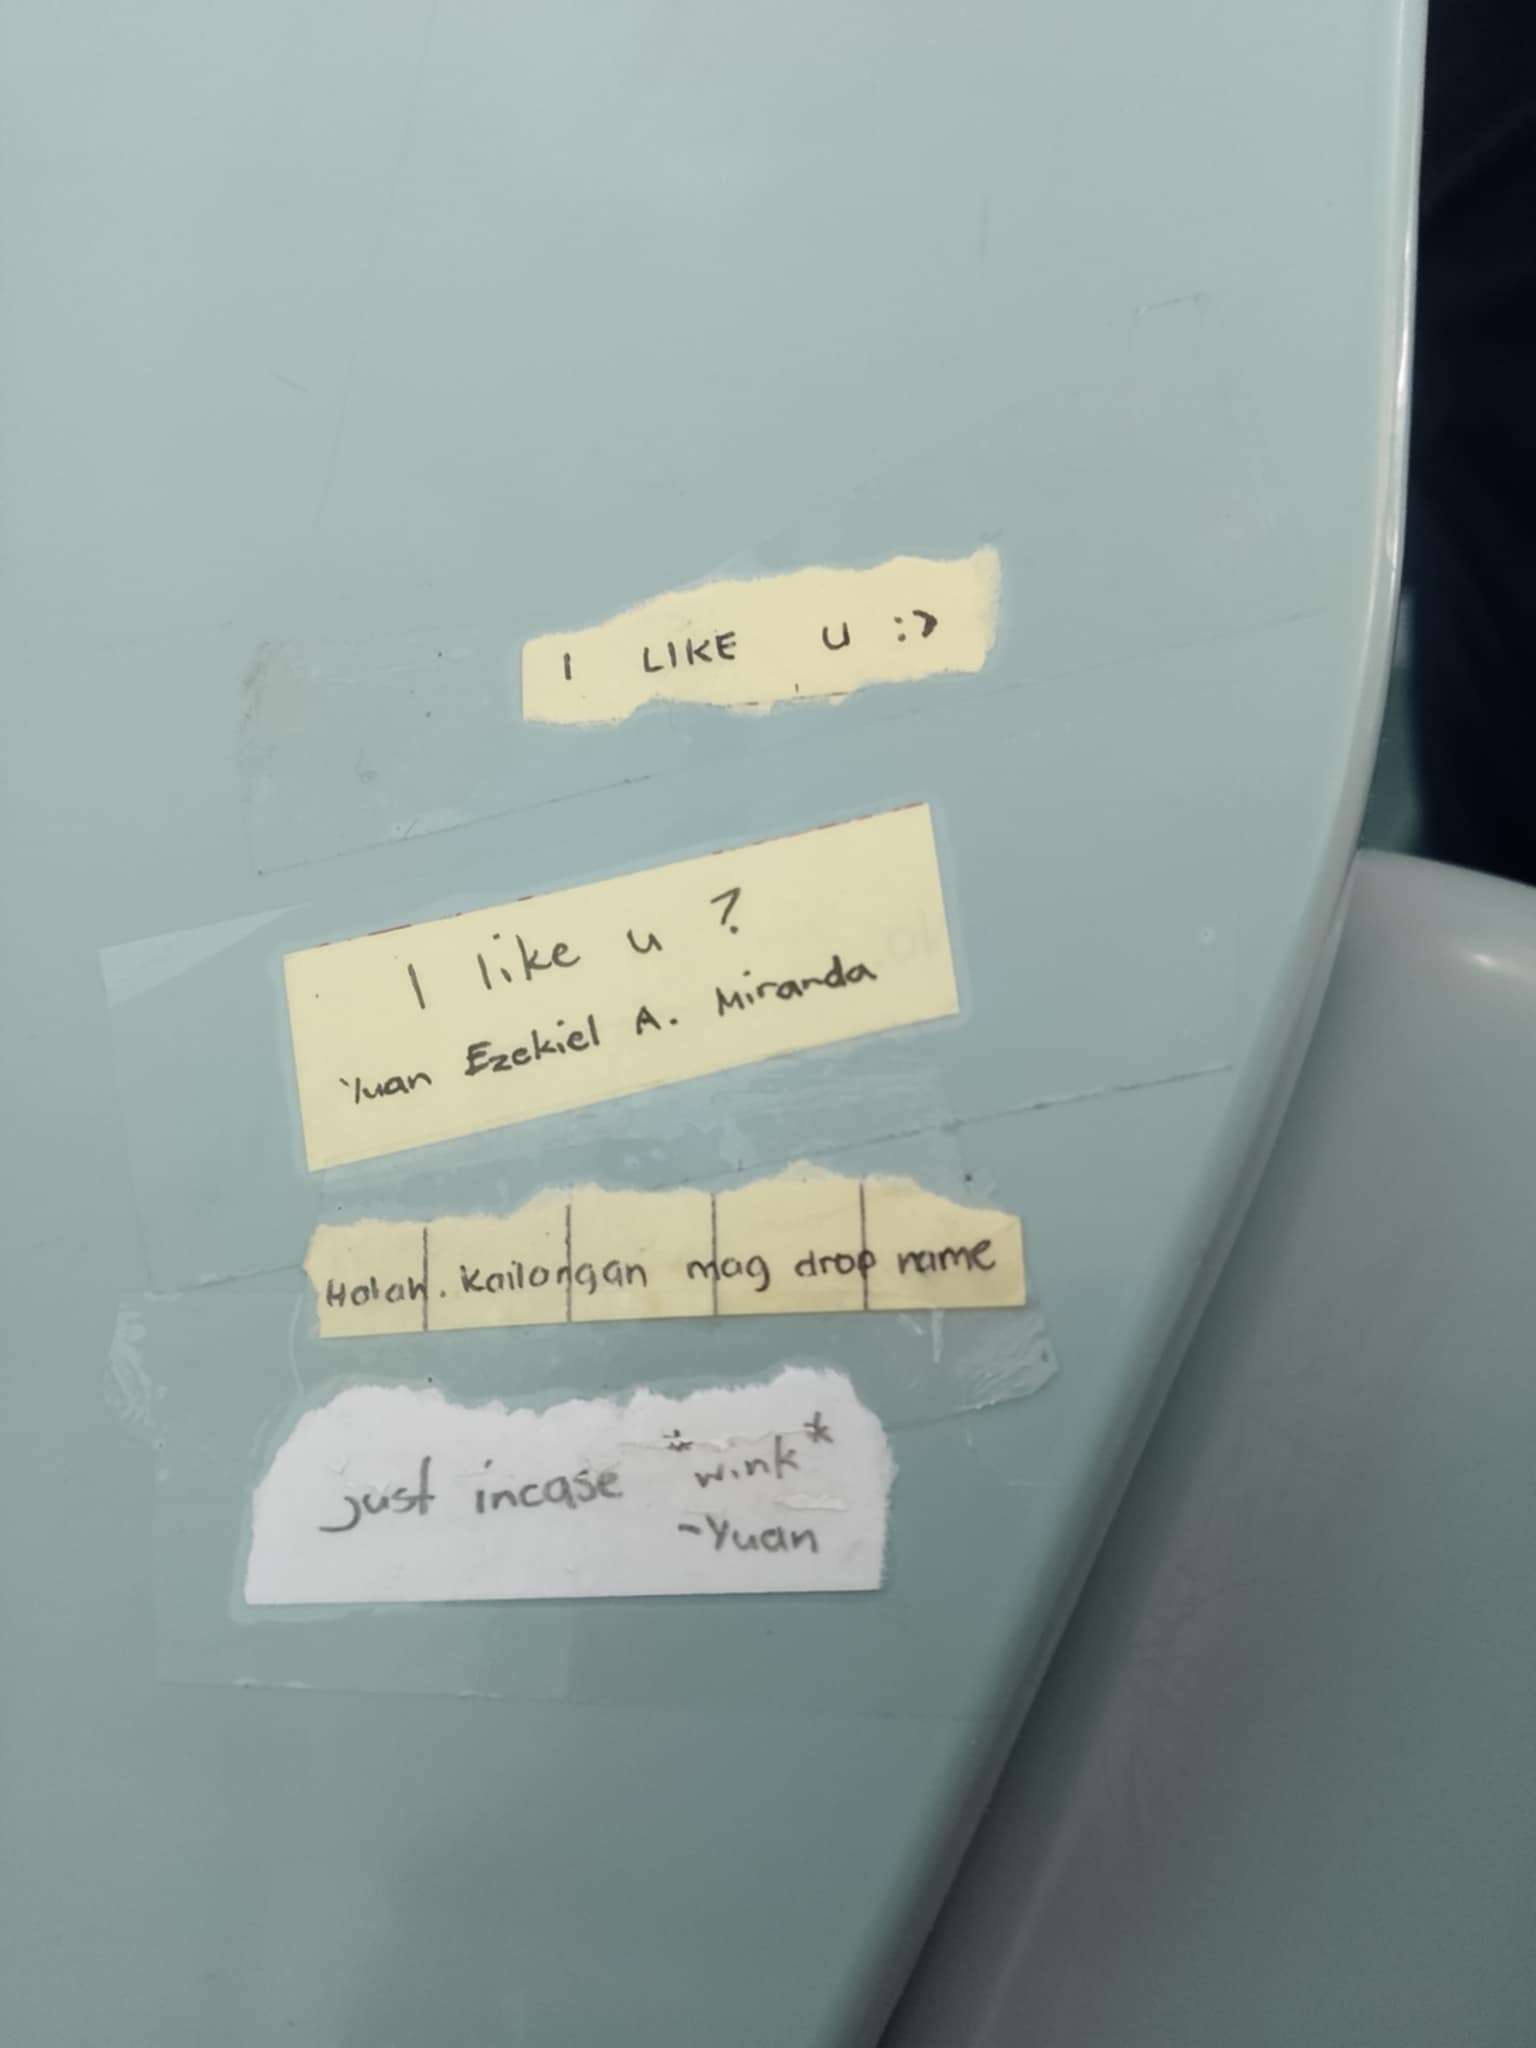 I LIKE U :>
I like u ?
Yuan Ezekiel A. Miranda
Halah. Kailangan mag drop name
just incase *wink*
-Yuan